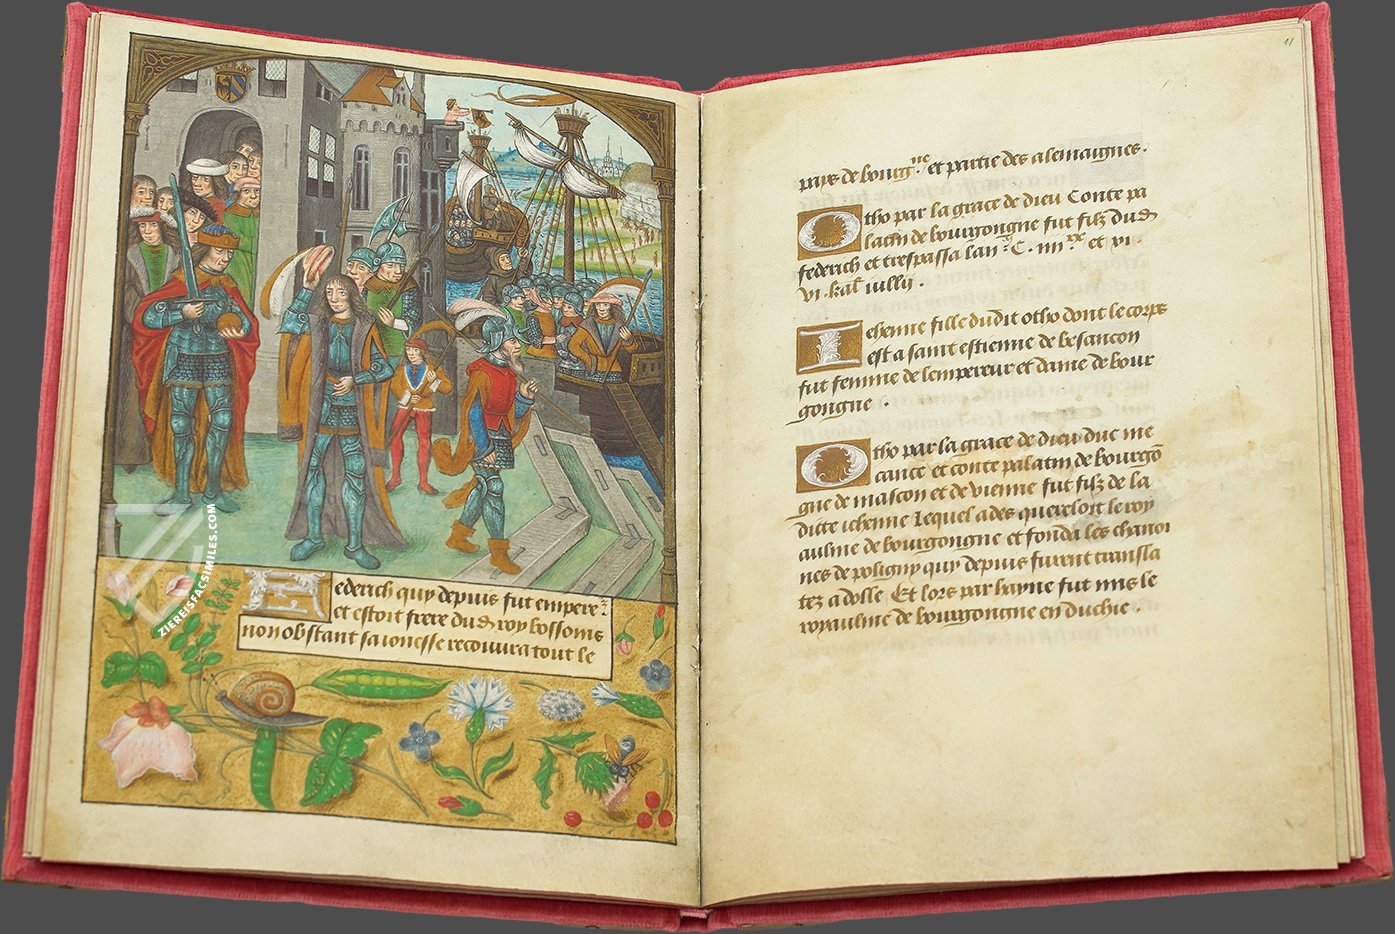 Federich quy depuis fut empere
et estoit frere dud roy bossoms
nonobstant sa ionesse recouvra tout le
ZIEREISFACSIMILES.COM
11
pays de bourgne et partie des alemaignes.
Otho par la grace de dieu Conte pa
latin de bourgongne fut filz dud
federich et trespassa lan C. iiiixx et vi.
vi. kal iully.
Iehenne fille dudit otho dont le corps
est a saint estienne de besancon
fut femme de lempereur et dame de bour
gongne.
Otho par la grace de dieu duc me
canie et conte palatin de bourgo
gne de mascon et de vienne fut filz de la
dicte iehenne Lequel ades quereloit le roy
aulme de bourgongne et fonda les chanoi
nes de poligny quy depuis furent transla
tez a dolle Et lors par hayne fut mis le
royaulme de bourgongne en duchie.